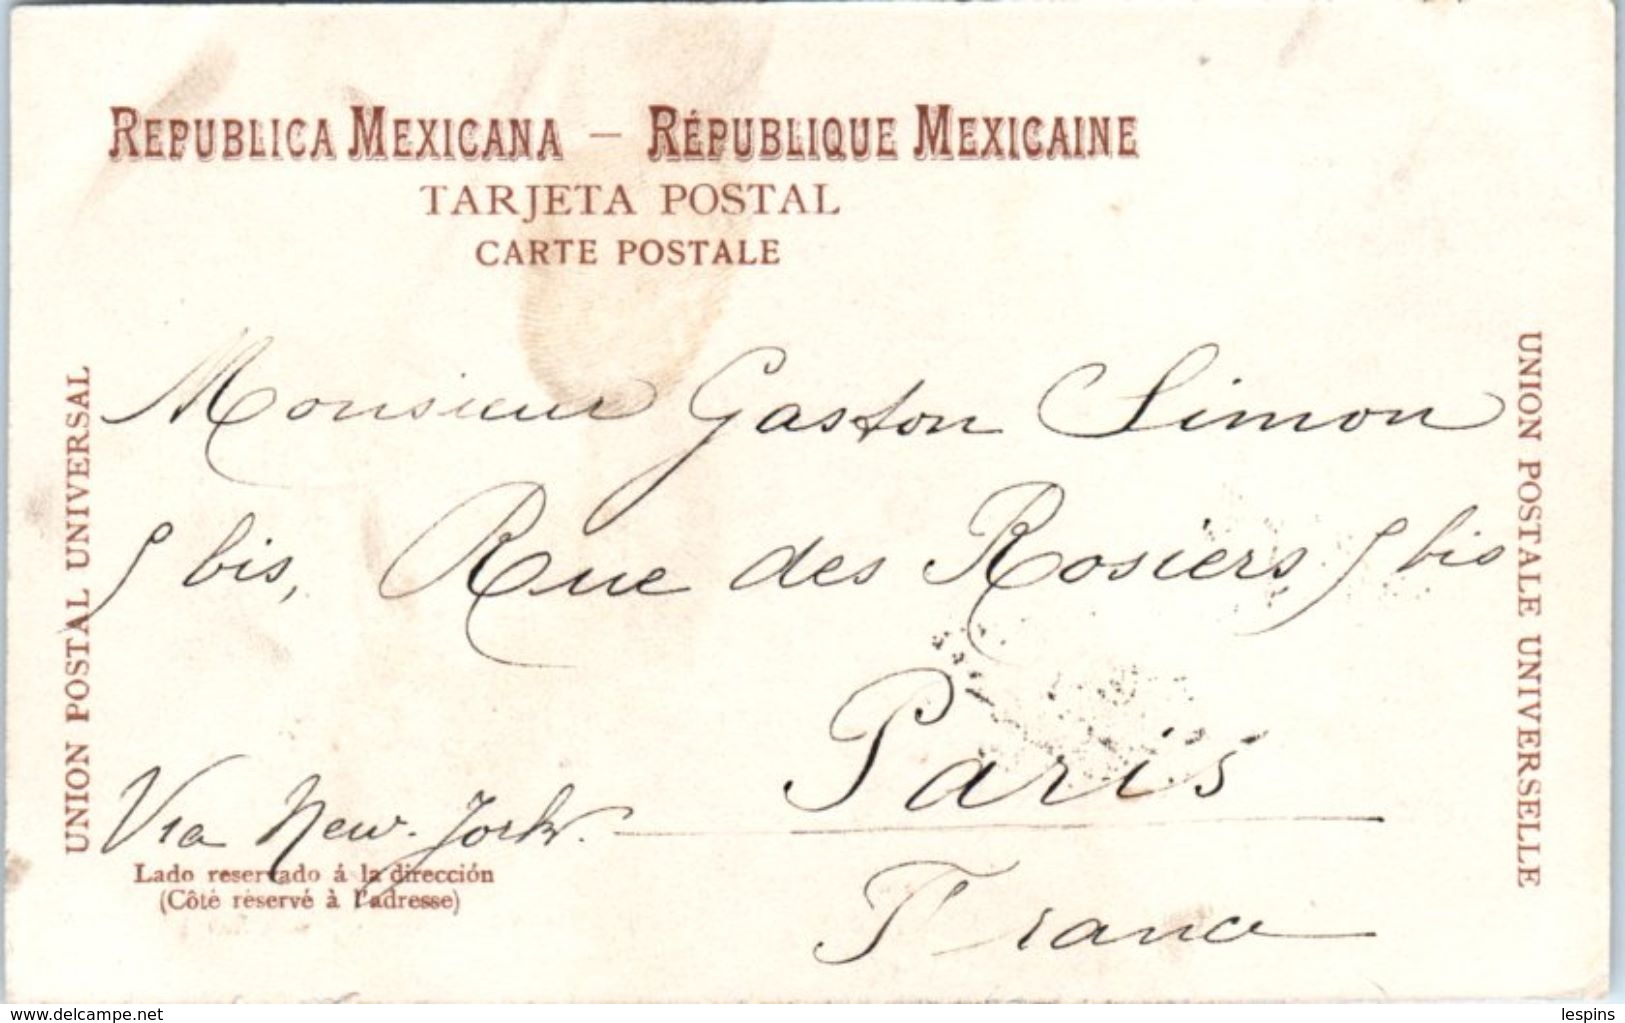 REPUBLICA MEXICANA — RÉPUBLIQUE MEXICAINE
TARJETA POSTAL
CARTE POSTALE
UNION POSTAL UNIVERSAL
UNION POSTALE UNIVERSELLE
Monsieur Gaston Simon
5 bis, Rue des Rosiers, 5 bis
Paris
Via New-York.
France
Lado reservado á la dirección
(Côté réservé à l'adresse)
www.delcampe.net
lespins